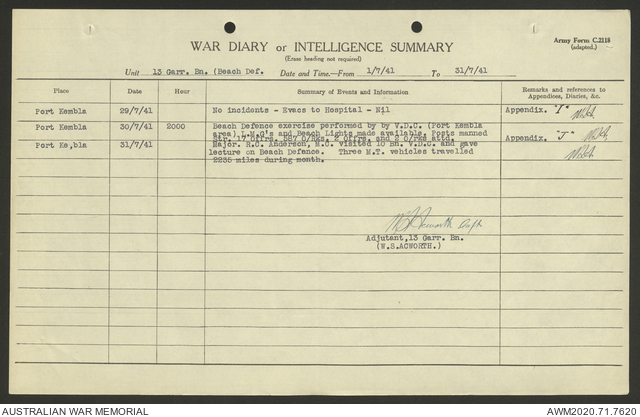 Army Form C.2118
(adapted.)
WAR DIARY or INTELLIGENCE SUMMARY
(Erase heading not required)
Unit 13 Garr. Bn. (Beach Def. Date and Time.—From 1/7/41 To 31/7/41
Place Date Hour Summary of Events and Information Remarks and references to
Appendices, Diaries, &c.
Port Kembla 29/7/41 No incidents - Evacs to Hospital - Nil Appendix. "I"
Port Kembla 30/7/41 2000 Beach Defence exercise performed by by V.D.C. (Port Kembla
area) L.M.G's and Beach Lights made available. Posts manned
Port Ke,bla 31/7/41 Str. 17 Offrs. 587 O/Rks. 2 Offrs. and 2 O/Rks attd. Appendix. "J"
Major. R.C. Anderson, M.C. visited 10 Bn. V.D.C and gave
lecture on Beach Defence. Three M.T. vehicles travelled
2236 miles during month.
Adjutant,13 Garr. Bn.
(W.S.ACWORTH.)
AUSTRALIAN WAR MEMORIAL AWM2020.71.7620